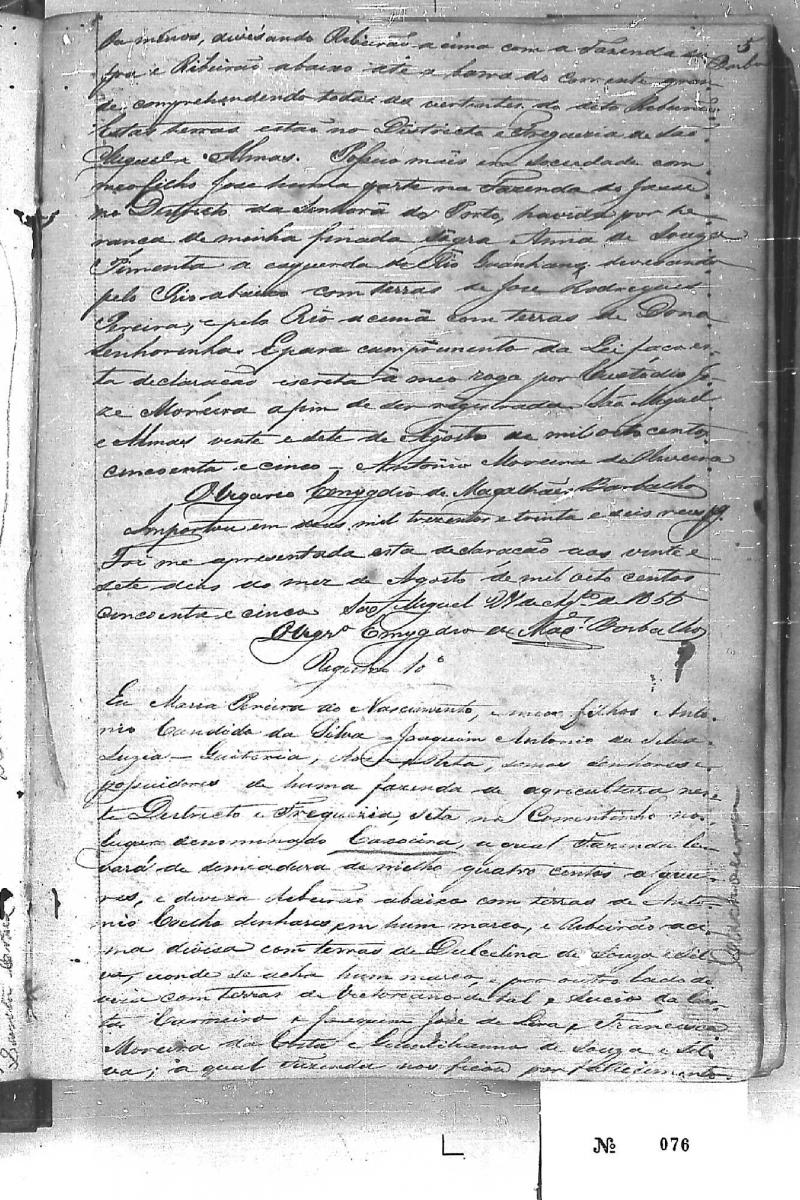 5
Barbalho
ou menos, divisando Ribeirão acima com a Fazenda do
e Ribeirão abaixo até a barra do Corrente gran-
de, comprehendendo todas as vertentes do dito Ribeirão
Estas terras estão no Districto e Freguezia de São
Miguel e Almas. Possuo mais em Sociedade com
meo filho José huma parte na Fazenda do
no Districto da Senhora do Porto, havida por he-
rança de minha finada Sogra Anna de Souza
Pimenta a esquerda do Rio Guanhans devisando
pelo Rio abaixo com terras de José Rodrigues
Pereira, e pelo Rio acima com terras de Dona
Senhorinha. E para cumprimento da Lei faço es-
ta declaração escrita á meo rogo por Custodio Jo-
ze Moreira afim de ser registrada São Miguel
e Almas vinte e sete de Agosto de mil oito centos
cincoenta e cinco - Antonio Moreira de Oliveira
O Vigario Emygdio de Magalhães Barbalho
Importou em dous mil trezentos e trinta e seis reis
Foi me apresentada esta declaração aos vinte e
sete dias do mez de Agosto de mil oito centos
cincoenta e cinco São Miguel 27 de Agto de 1855
O Vigrº Emygdio de Magˢ Barbalho
Registro 10º
Eu Maria Pereira do Nascimento, e meos filhos Anto-
nio Candido da Silva - Joaquim Antonio da Silva
Luzia - Quiteria, Rita, somos senhores e
possuidores de huma fazenda de agricultura nes-
te Districto e Freguezia sita no Correntinho no
lugar denominado Caxoeira, a qual Fazenda le-
vará de semeadura de milho quatro centos alquei-
res, e diviza Ribeirão abaixo com terras de Anto-
nio Coelho Linhares, em hum marco, e Ribeirão aci-
ma divisa com terras de Dulcelina de Souza e Sil-
va, aonde se acha hum marco, e por outro lado de
viza com terras de Vectoriano de tal e Lucio da Cos-
ta Carneiro e Joaquim José de Lima e Francisco
Moreira da Costa e de Souza e Sil-
va; a qual Fazenda nos ficou por falescimento
Cachoeira
Nº 076